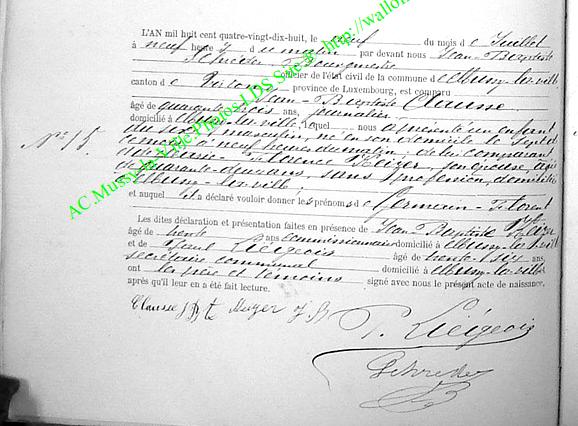 L'AN mil huit cent quatre-vingt-dix-huit, le neuf du mois de Juillet
à neuf heures du matin par devant nous Jean-Baptiste
Schréder, Bourgmestre
officier de l'état civil de la commune de Mussy-la-ville
canton de Virton, province de Luxembourg, est comparu
Jean-Baptiste Clausse
âgé de quarante-trois ans, journalier,
domicilié à Mussy-la-ville, lequel nous a présenté un enfant
du sexe masculin, né en son domicile le sept de
ce mois à neuf heures du matin, de lui comparant
et de Marie-Florence son épouse, âgée
de quarante-deux ans, sans profession, domiciliée
à Mussy-la-ville;
N° 15
et auquel il a déclaré vouloir donner les prénoms de Germain-Florent
Les dites déclaration et présentation faites en présence de Jean Baptiste
âgé de trente ans commissionnaire domicilié à Mussy-la-ville
et de Paul Liégeois âgé de trente-six ans,
secrétaire communal domicilié à Mussy-la-ville
ont les père et témoins signé avec nous le présent acte de naissance,
après qu'il leur en a été fait lecture.
Clausse JBte J B
P. Liégeois
Schréder
AC.Mussy-la-Ville Photos-LDS Site @: http://wallo